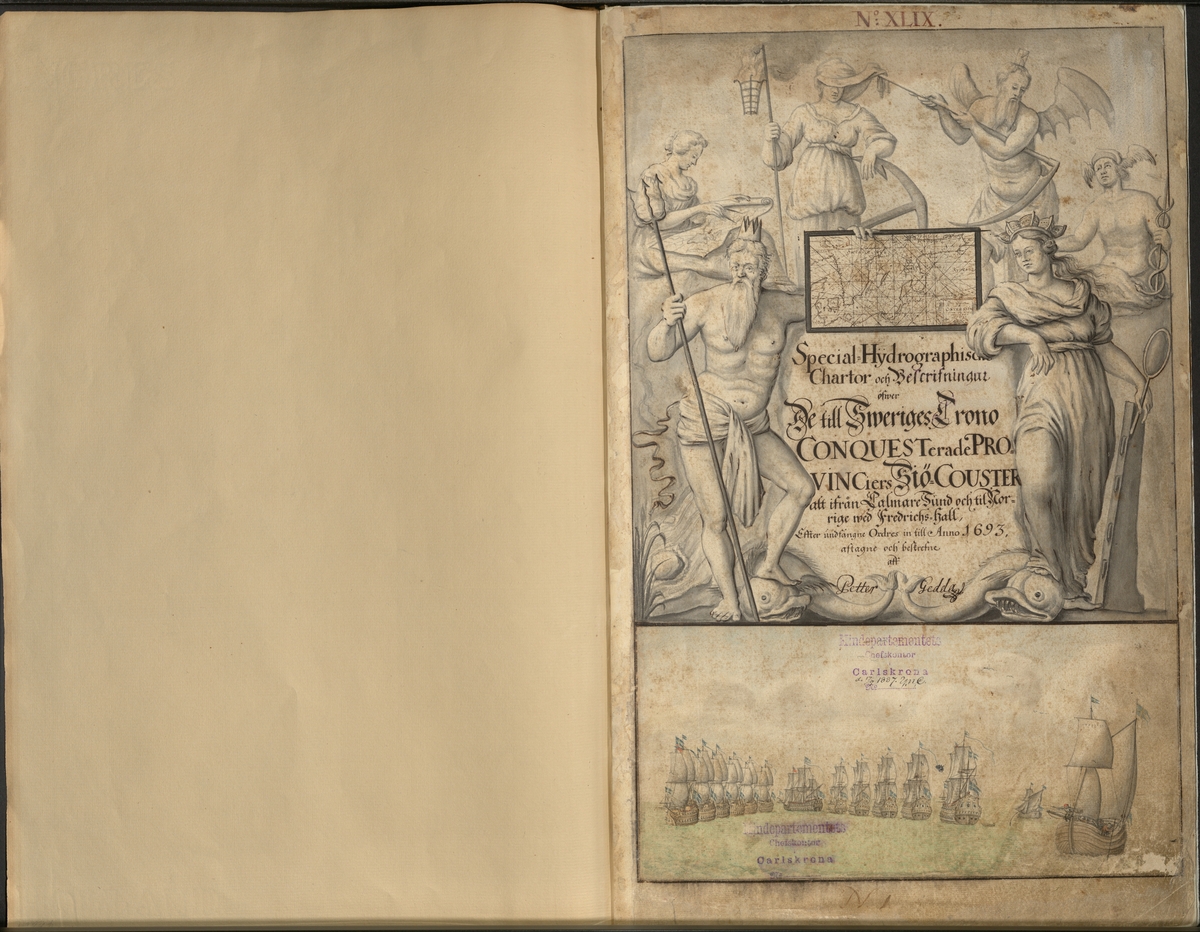 No. XLIX.
Special-Hydrographische
Chartor och Bescrifningar
öfwer
De till Sweriges Crono
CONQUESTerade PRO-
VINCiers Siö-COUSTER
att ifrån Calmare Sund och til Nor-
rige wed Fredrichs-hall,
Effter undfångne Ordres in till Anno 1693,
aftagne och beskrefne
aff
Petter Gedda
Mindepartementets
Chefskontor
Carlskrona
1887
Mindepartementets
Chefskontor
Carlskrona
N. 1